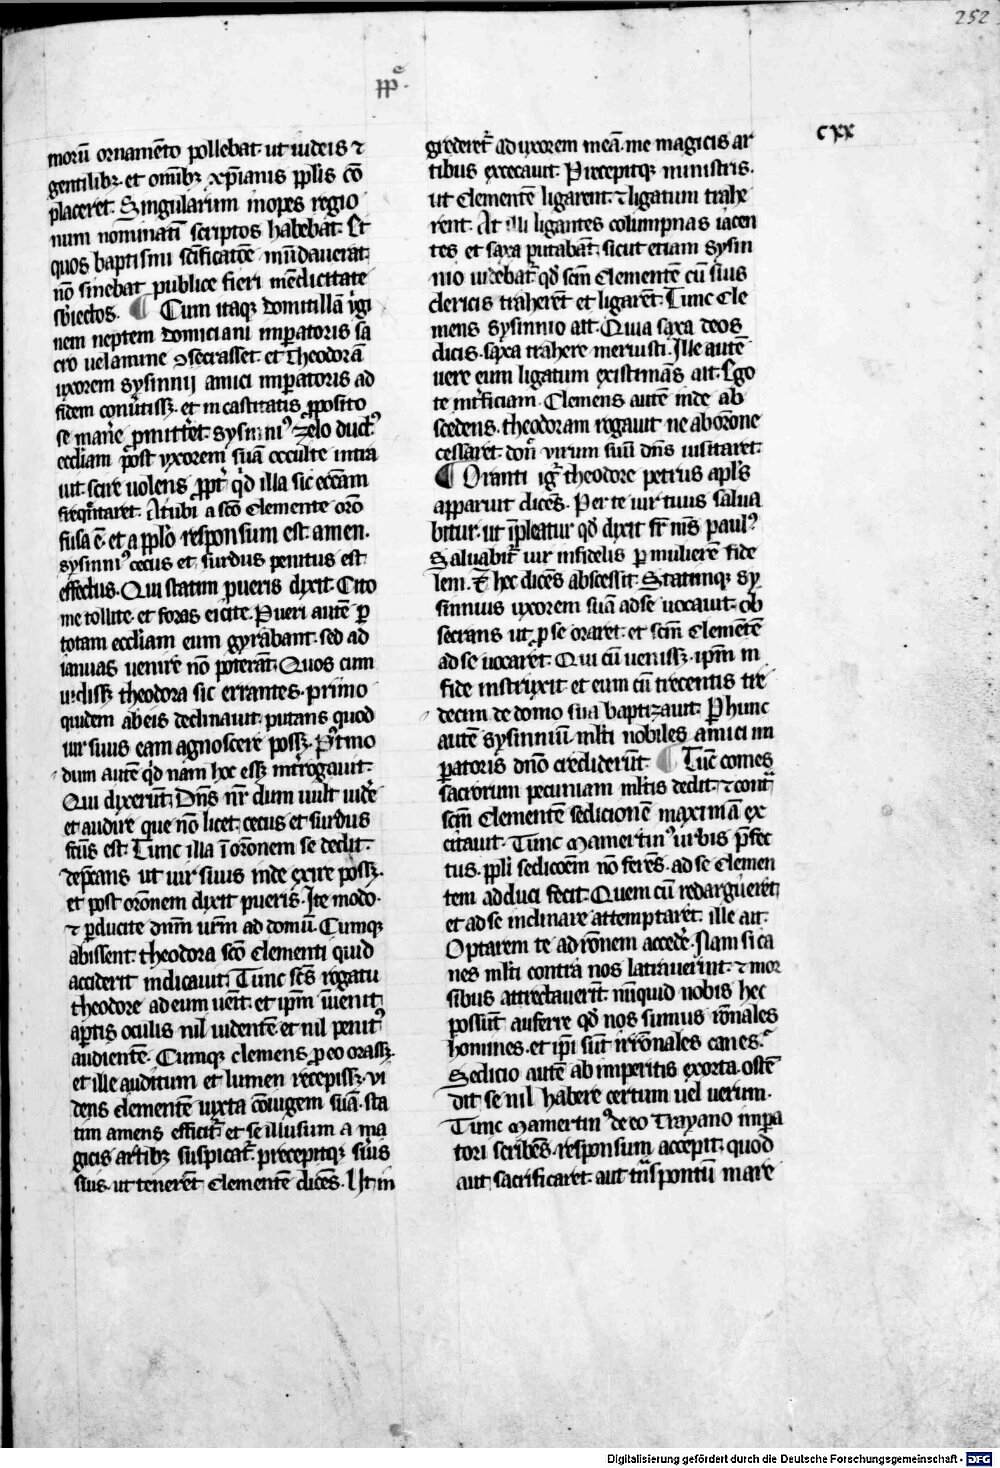 252
cxx
morū ornamēto pollebat· ut iudeis ⁊
gentilibꝫ· et om̄ibꝫ xp̄ianis ꝓp̄lis cō
placeret· Singularum inopes regio
num nominatī scriptos habebat· Et
quos baptismi sc̄ificatōe mūdauerat
nō sinebat publice fieri mēdicitate
sb̄iectos· ¶ Cum itaqꝫ domitillā ỽgi
nem neptem domiciani imꝑatoris sā
cro uelamine ꝯsecrasset· et theodorā
uxorem sysinnij amici imꝑatoris ad
fidem conūtissꝫ· et in castitatis ꝓposito
se man̄e ꝓmitt̄et· sysinniꝰ zelo ductꝰ
eccl̄iam post uxorem suā occulte intra
uit· scire uolens ꝓpt̄ qd̄ illa sic ecc̄am
freq̄ntaret· At ubi a sc̄o clemente orō
fusa ē· et a ꝓpl̄o responsum est· amen·
sysinniꝰ cecus et surdus penitus est
effectus· Qui statim pueris dixit· Cito
me tollite· et foras eicite· Pueri autē ꝑ
totam eccl̄iam eum gyrabant· sed ad
ianuas uenire nō poterāt· Quos cum
uidissꝫ theodora sic errantes· primo
quidem ab eis declinauit· putans quod
uir suus eam agnoscere possꝫ· Postmo
dum autē qd̄ nam hoc essꝫ int̄rogauit·
Qui dixerūt· Dn̄s nr̄ dum uult uid̄e
et audire que nō licet· cecus et surdus
fc̄us est· Tunc illa ī orōnem se dedit·
dep̄cans ut uir suus inde exire possꝫ·
et post orōnem dixit pueris· Ite modo·
⁊ ꝑducite dn̄m ur̄m ad domū· Cumqꝫ
abissent· theodora sc̄o clementi quid
acciderit indicauit· Tunc sc̄s rogatu
theodore ad eum uēit· et ip̄m īuenit
aꝑtis oculis nil uidentē et nil penitꝰ
audientē· Cumqꝫ clemens ꝓ eo orassꝫ·
et ille auditum et lumen recepissꝫ· ui
dens clementē iuxta cōiugem suā· sta
tim amens efficit̄· et se illusum a ma
gicis artibꝫ suspicat̄· precepitqꝫ s̄uis
suis· ut tenerēt clementē dicēs· Ut in
grederet̄ ad uxorem meā· me magicis ar
tibus excecauit· Precepitqꝫ ministris·
ut clementē ligarent· ⁊ ligatum trahe
rent· At illi ligantes columpnas iacen
tes et saxa putabāt· sicut etiam sysin
nio uidebat̄· qd̄ scm̄ clementē cū suis
clericis traherēt et ligarēt· Tunc cle
mens sysinnio ait· Quia saxa deos
dicis· saxa trahere meruisti· Ille autē
uere eum ligatum existimās ait· Ego
te int̄ficiam· Clemens autē inde ab
scedens· theodoram rogauit ne ab orōne
cessaret· don̄ virum suū dn̄s uisitaret·
¶ Oranti igr̄ theodore petrus apl̄s
apparuit dicēs· Per te uir tuus salua
bitur· ut īpleatur qd̄ dixit fr̄ m̄s paulꝰ
Saluabit̄ uir infidelis ꝑ mulierē fide
lem· Et hec dicēs abscessit· Statimqꝫ sy
sinnius uxorem suā ad se uocauit· ob
secrans ut ꝓ se oraret· et scm̄ clemētē
ad se uocaret· Qui cū uenissꝫ· ip̄m in
fide instruxit et eum cū trecentis tre
decim de domo sua baptizauit· Per hunc
autē sysinniū ml̄ti nobiles amici im
ꝑatoris dn̄o crediderūt· ¶ Tūc comes
sacrorum pecuniam ml̄tis dedit· ⁊ contra
scm̄ clementē sedicionē maximā ex
citauit· Tunc mamertinꝰ urbis p̄fec
tus· ꝓpli sedicōem nō ferēs· ad se clemen
tem adduci fecit· Quem cū redargueret
et ad se inclinare attemptaret· ille ait·
Optarem te ad rōnem acced̄e· Nam si ca
nes ml̄ti contra nos latrauerint· ⁊ mor
sibus attrectauerīt· nūquid nobis hec
possūt auferre qd̄ nos sumus rōnales
homines· et ip̄i sūt irrōnales canes·
Sedicio autē ab imperitis exorta· ostē
dit se nil habere certum uel uerum·
Tunc mamertinꝰ de eo trayano imꝑa
tori scribēs· responsum accepit· quod
aut sacrificaret· aut trās pontū mare
Digitalisierung gefördert durch die Deutsche Forschungsgemeinschaft - DFG